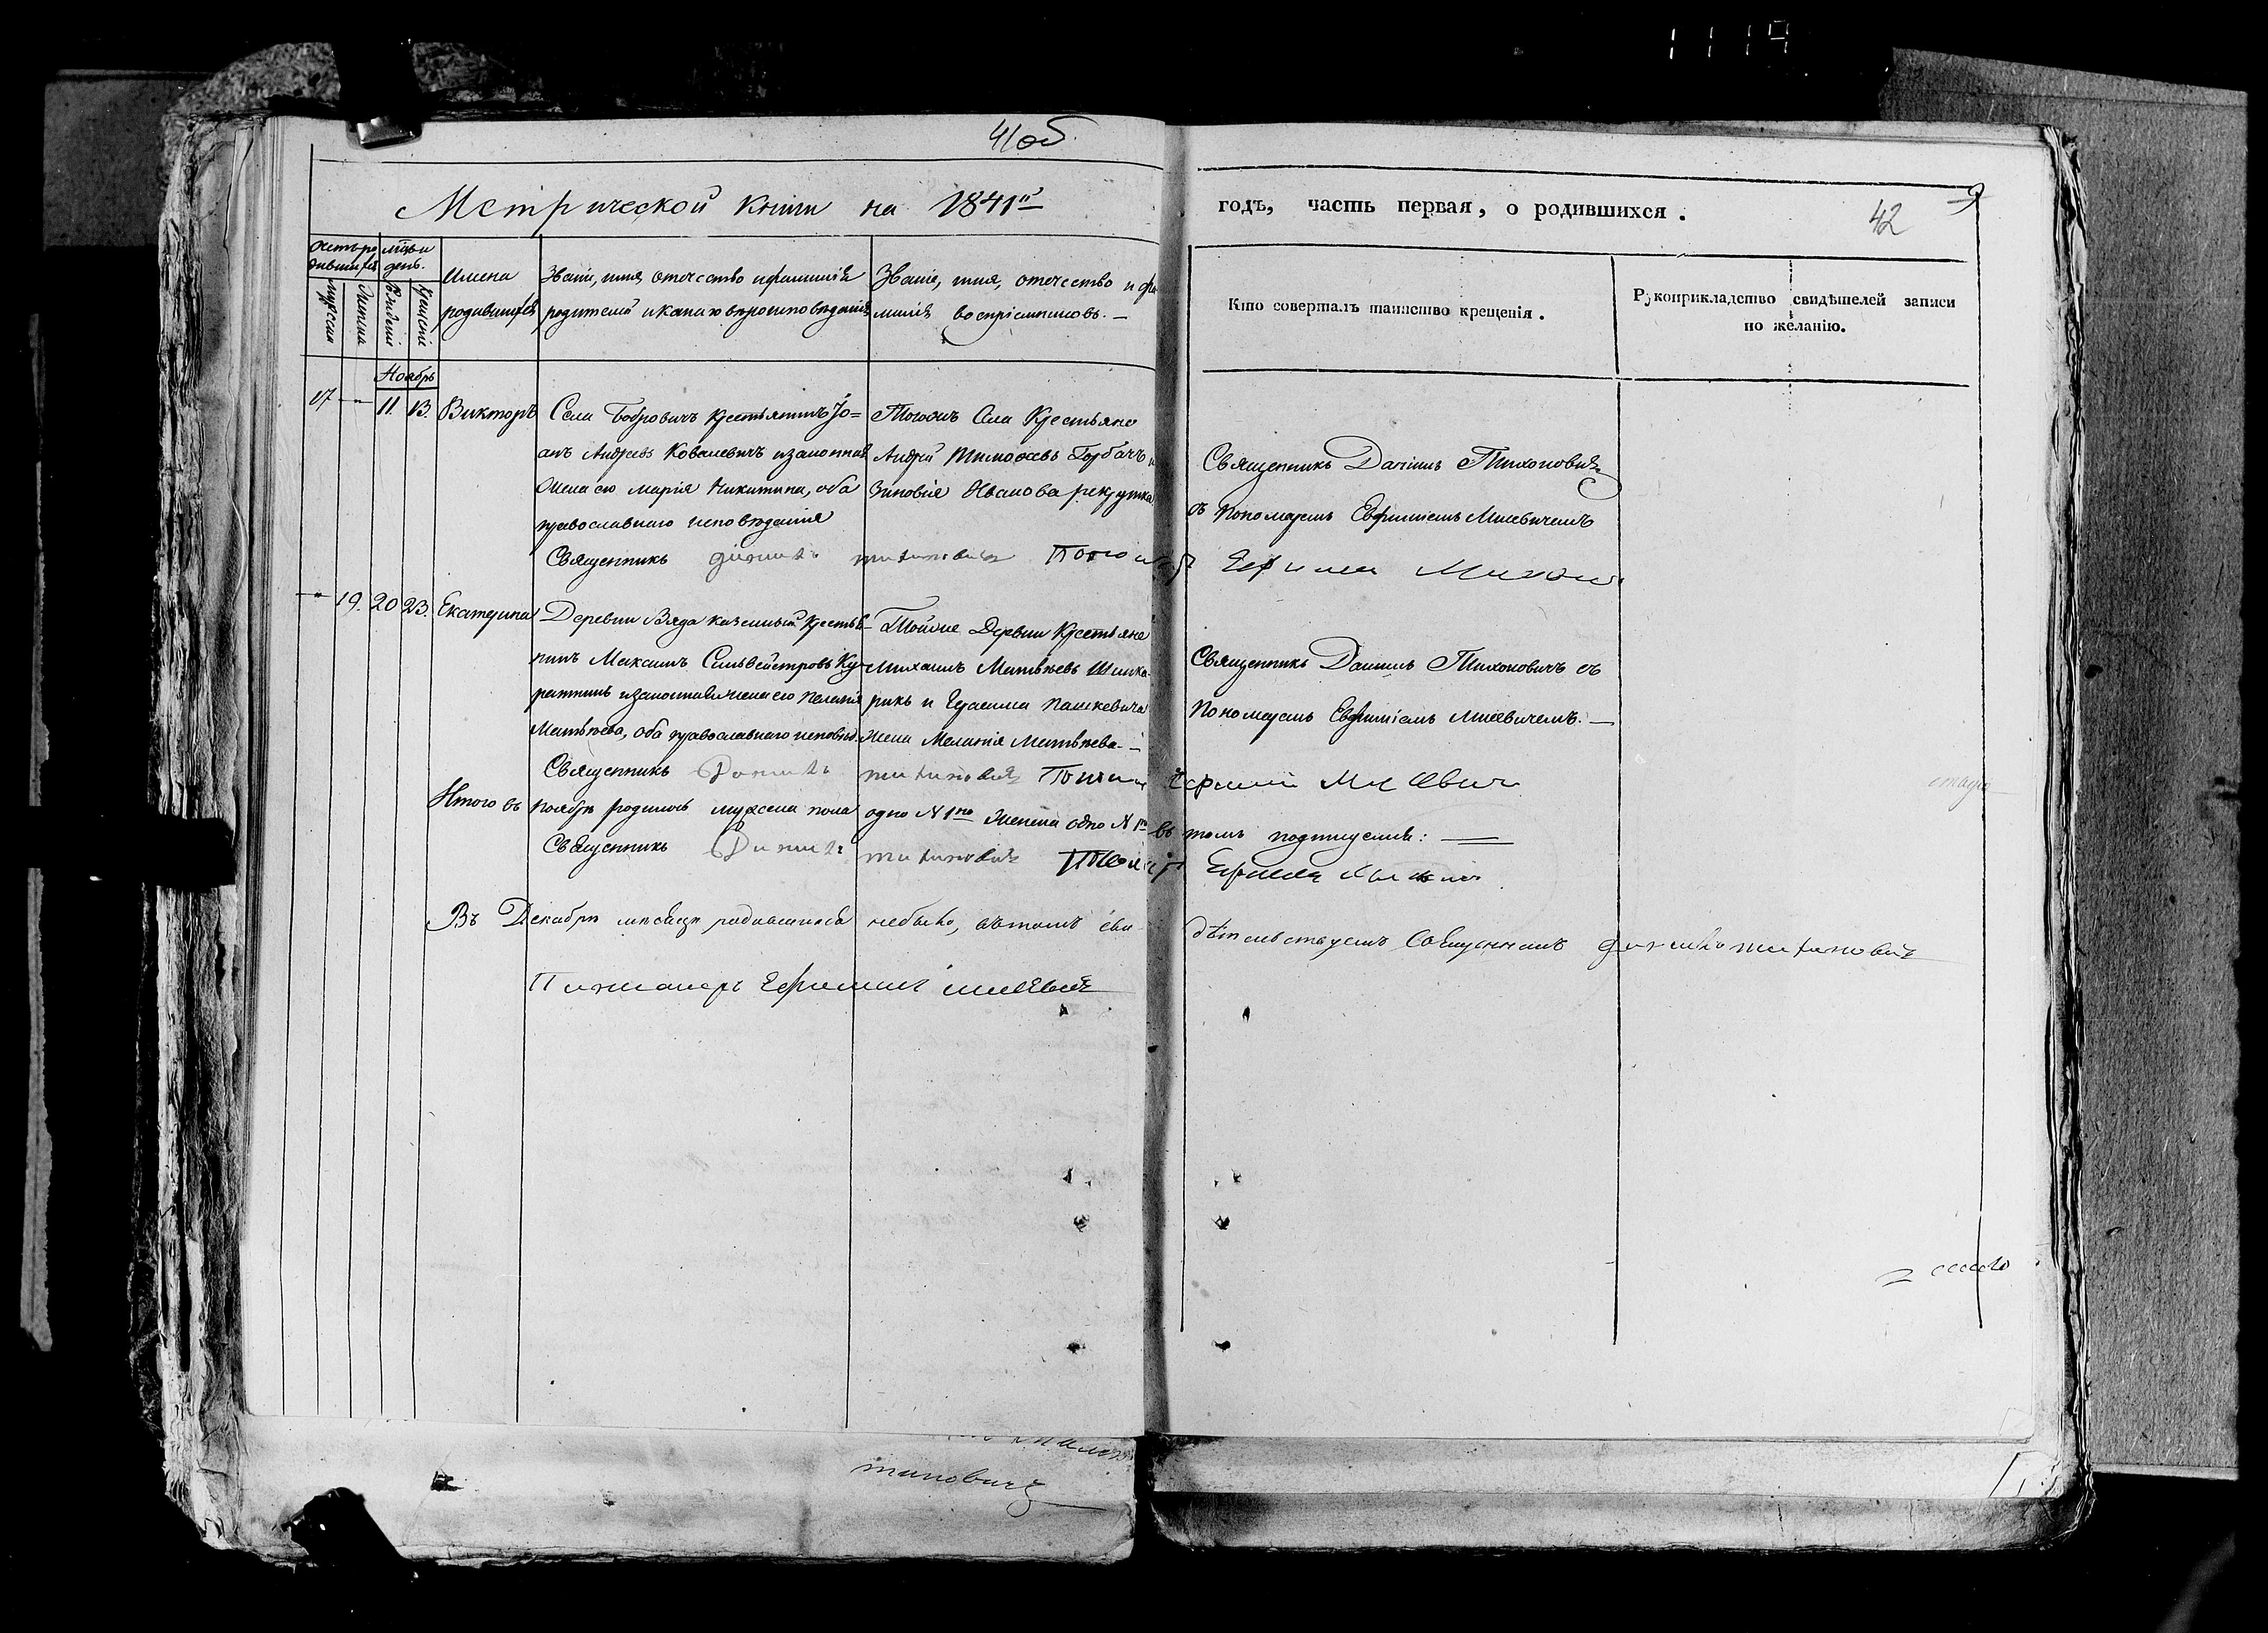 1119
41 об.
Метрической книги на 1841й
годъ, часть первая, о родившихся.
42
9
Счетъ ро
дившихся
мѣс. и
день.
Имена
родившихся
Званіе, имя, отечество и фамилія
родителей и какаго вѣроисповѣданія
Званіе, имя, отечество и фа
милія воспріемниковъ. —
мужеска
женска
рожденія
крещенія
Кто совершалъ таинство крещенія.
Рукоприкладство свидѣтелей записи
по желанію.
Ноябрь
17 — 11. 13. Викторъ
Села Бобровичъ крестьянинъ Іо=
анъ Андреевъ Ковалевичъ и законная
жена его Марія Никитина, оба
православнаго исповѣданія
Тогожъ села крестьяне
Андрей Тимофеевъ Горбачъ и
Зиновія Иванова рекрутка
Священникъ Даніилъ Тихоновичъ
съ пономаремъ Евфиміемъ Мисевичемъ
Священникъ Данилъ Тихоновичъ
19. 20 23. Екатерина
Деревни Вяда казенный крестья
нинъ Максимъ Сильвестровъ Ку
ратникъ и законная жена его Пелагія
Матвѣева, оба православнаго исповѣд.
Тойже деревни крестьяне
Михаилъ Матвѣевъ Шинка
рикъ и Герасима Пашкевича
жена Меланія Матвѣева. —
Священникъ Даніилъ Тихоновичъ съ
пономаремъ Евфиміемъ Мисевичемъ. —
Священникъ Данилъ Тихоновичъ Ефимій Мисевич
Итого въ ноябрѣ родилось мужеска пола одно № 1но женска одно № 1но въ томъ подписуемся: —
Священникъ Данилъ Тихоновичъ
Въ Декабрѣ месяцѣ родившихся небыло, вътомъ сви
дѣтельствуемъ Священникъ Данилъ Тихоновичъ
Пономаръ Ефимий Мисевичъ
тиновичъ